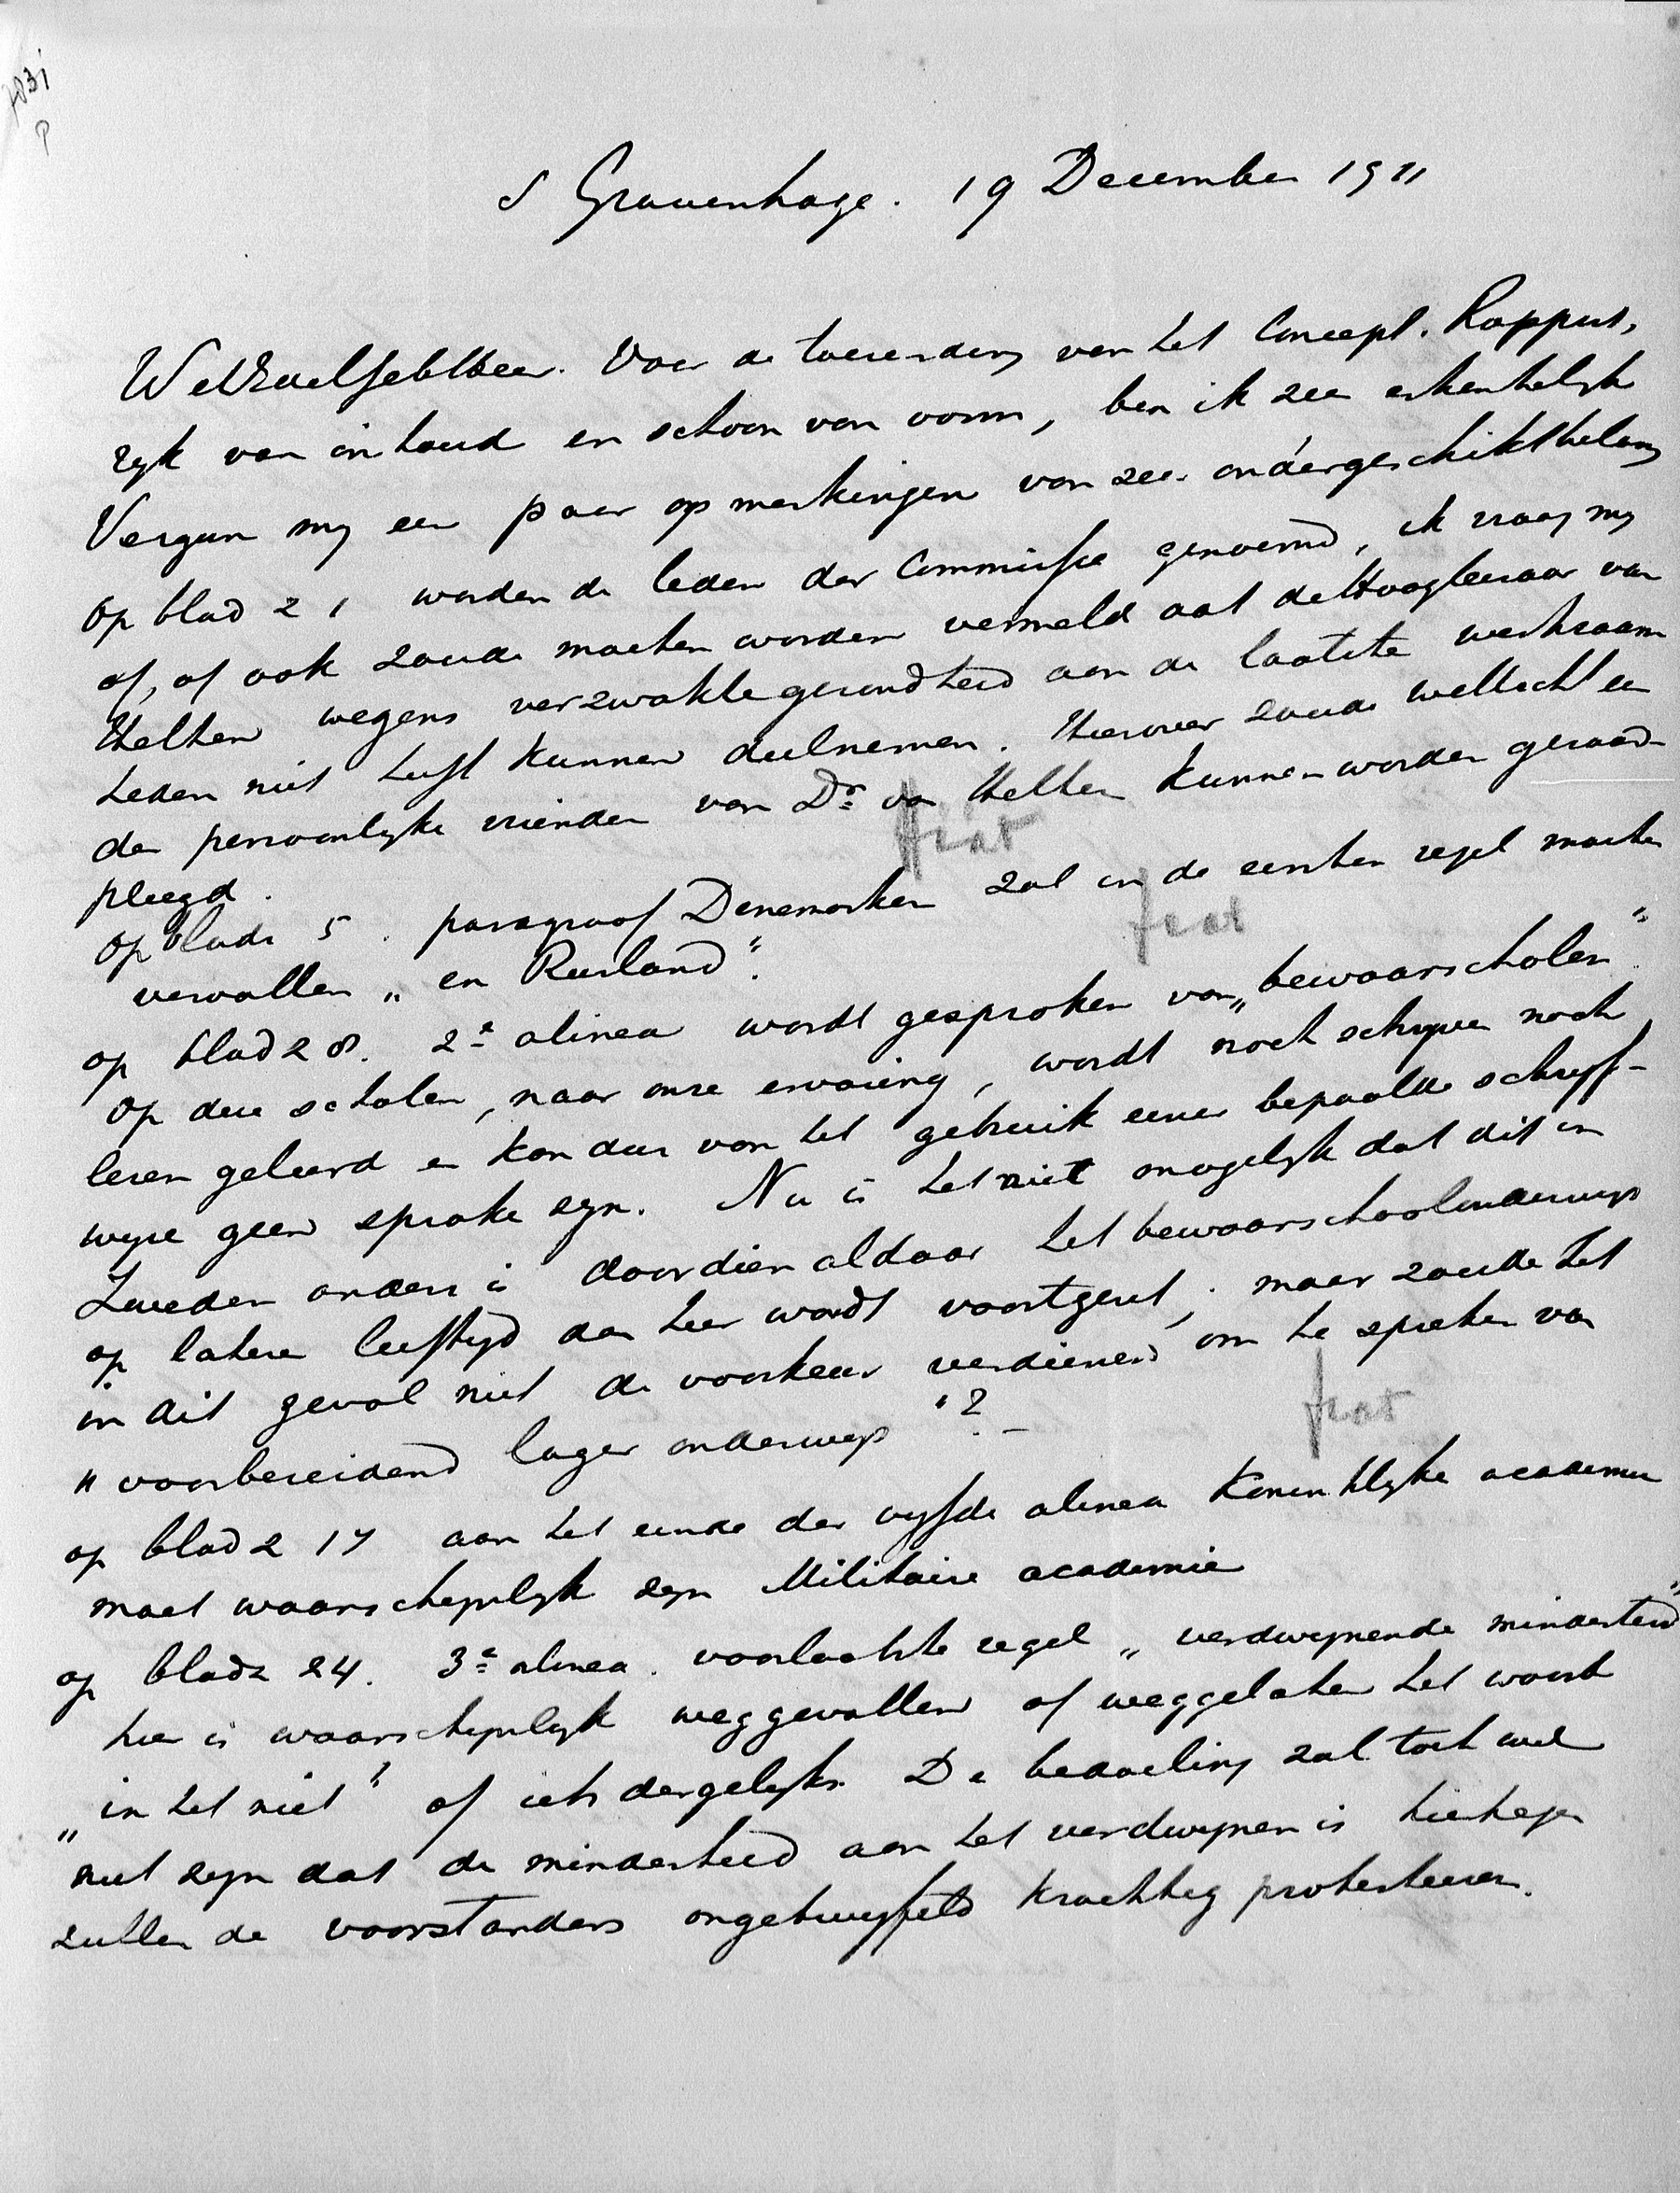 7031
P
s Gravenhage. 19 December 1911
WelEdelGebHeer. Voor de toezending van het Concept. Rapport,
rijk van inhoud en schoon van vorm, ben ik zeer erkentelijk
Vergun mij een paar opmerkingen van zeer ondergeschikt belang
op bladz 1 worden de leden der Commissie genoemd, ik vraag mij
af, of ook zoude moeten worden vermeld dat de Hoogleeraar van
Helten wegens verzwakte gezondheid aan de laatste werkzaam
heden niet heeft kunnen deelnemen. Hierover zoude wellicht een
der persoonlijke vrienden van Dr van Helten kunnen worden geraad-
pleegd.
fiat
op bladz 5. paragraaf Denemarken zal in de eersten regel moeten
vervallen „en Rusland".
fiat
op bladz 8. 2e alinea wordt gesproken van „bewaarscholen"
Op deze scholen, naar onze ervaring, wordt noch schrijven noch
lezen geleerd en kan dus van het gebruik eener bepaalde schrijf-
wijze geen sprake zijn. Nu is het niet onmogelijk dat dit in
Zweden anders is doordien aldaar het bewaarschoolonderwijs
op latere leeftijd dan hier wordt voortgezet; maar zoude het
in dit geval niet de voorkeur verdienen om te spreken van
„voorbereidend lager onderwijs"?
fiat
op bladz 17 aan het einde der vijfde alinea Koninklijke academie
moet waarschijnlijk zijn Militaire academie
op bladz 24. 3e alinea. voorlaatste regel „verdwijnende minderheid"
hier is waarschijnlijk weggevallen of weggelaten het woord
„in het niet" of iets dergelijks. De bedoeling zal toch wel
niet zijn dat de minderheid aan het verdwijnen is hiertegen
zullen de voorstanders ongetwijfeld krachtig protesteeren.